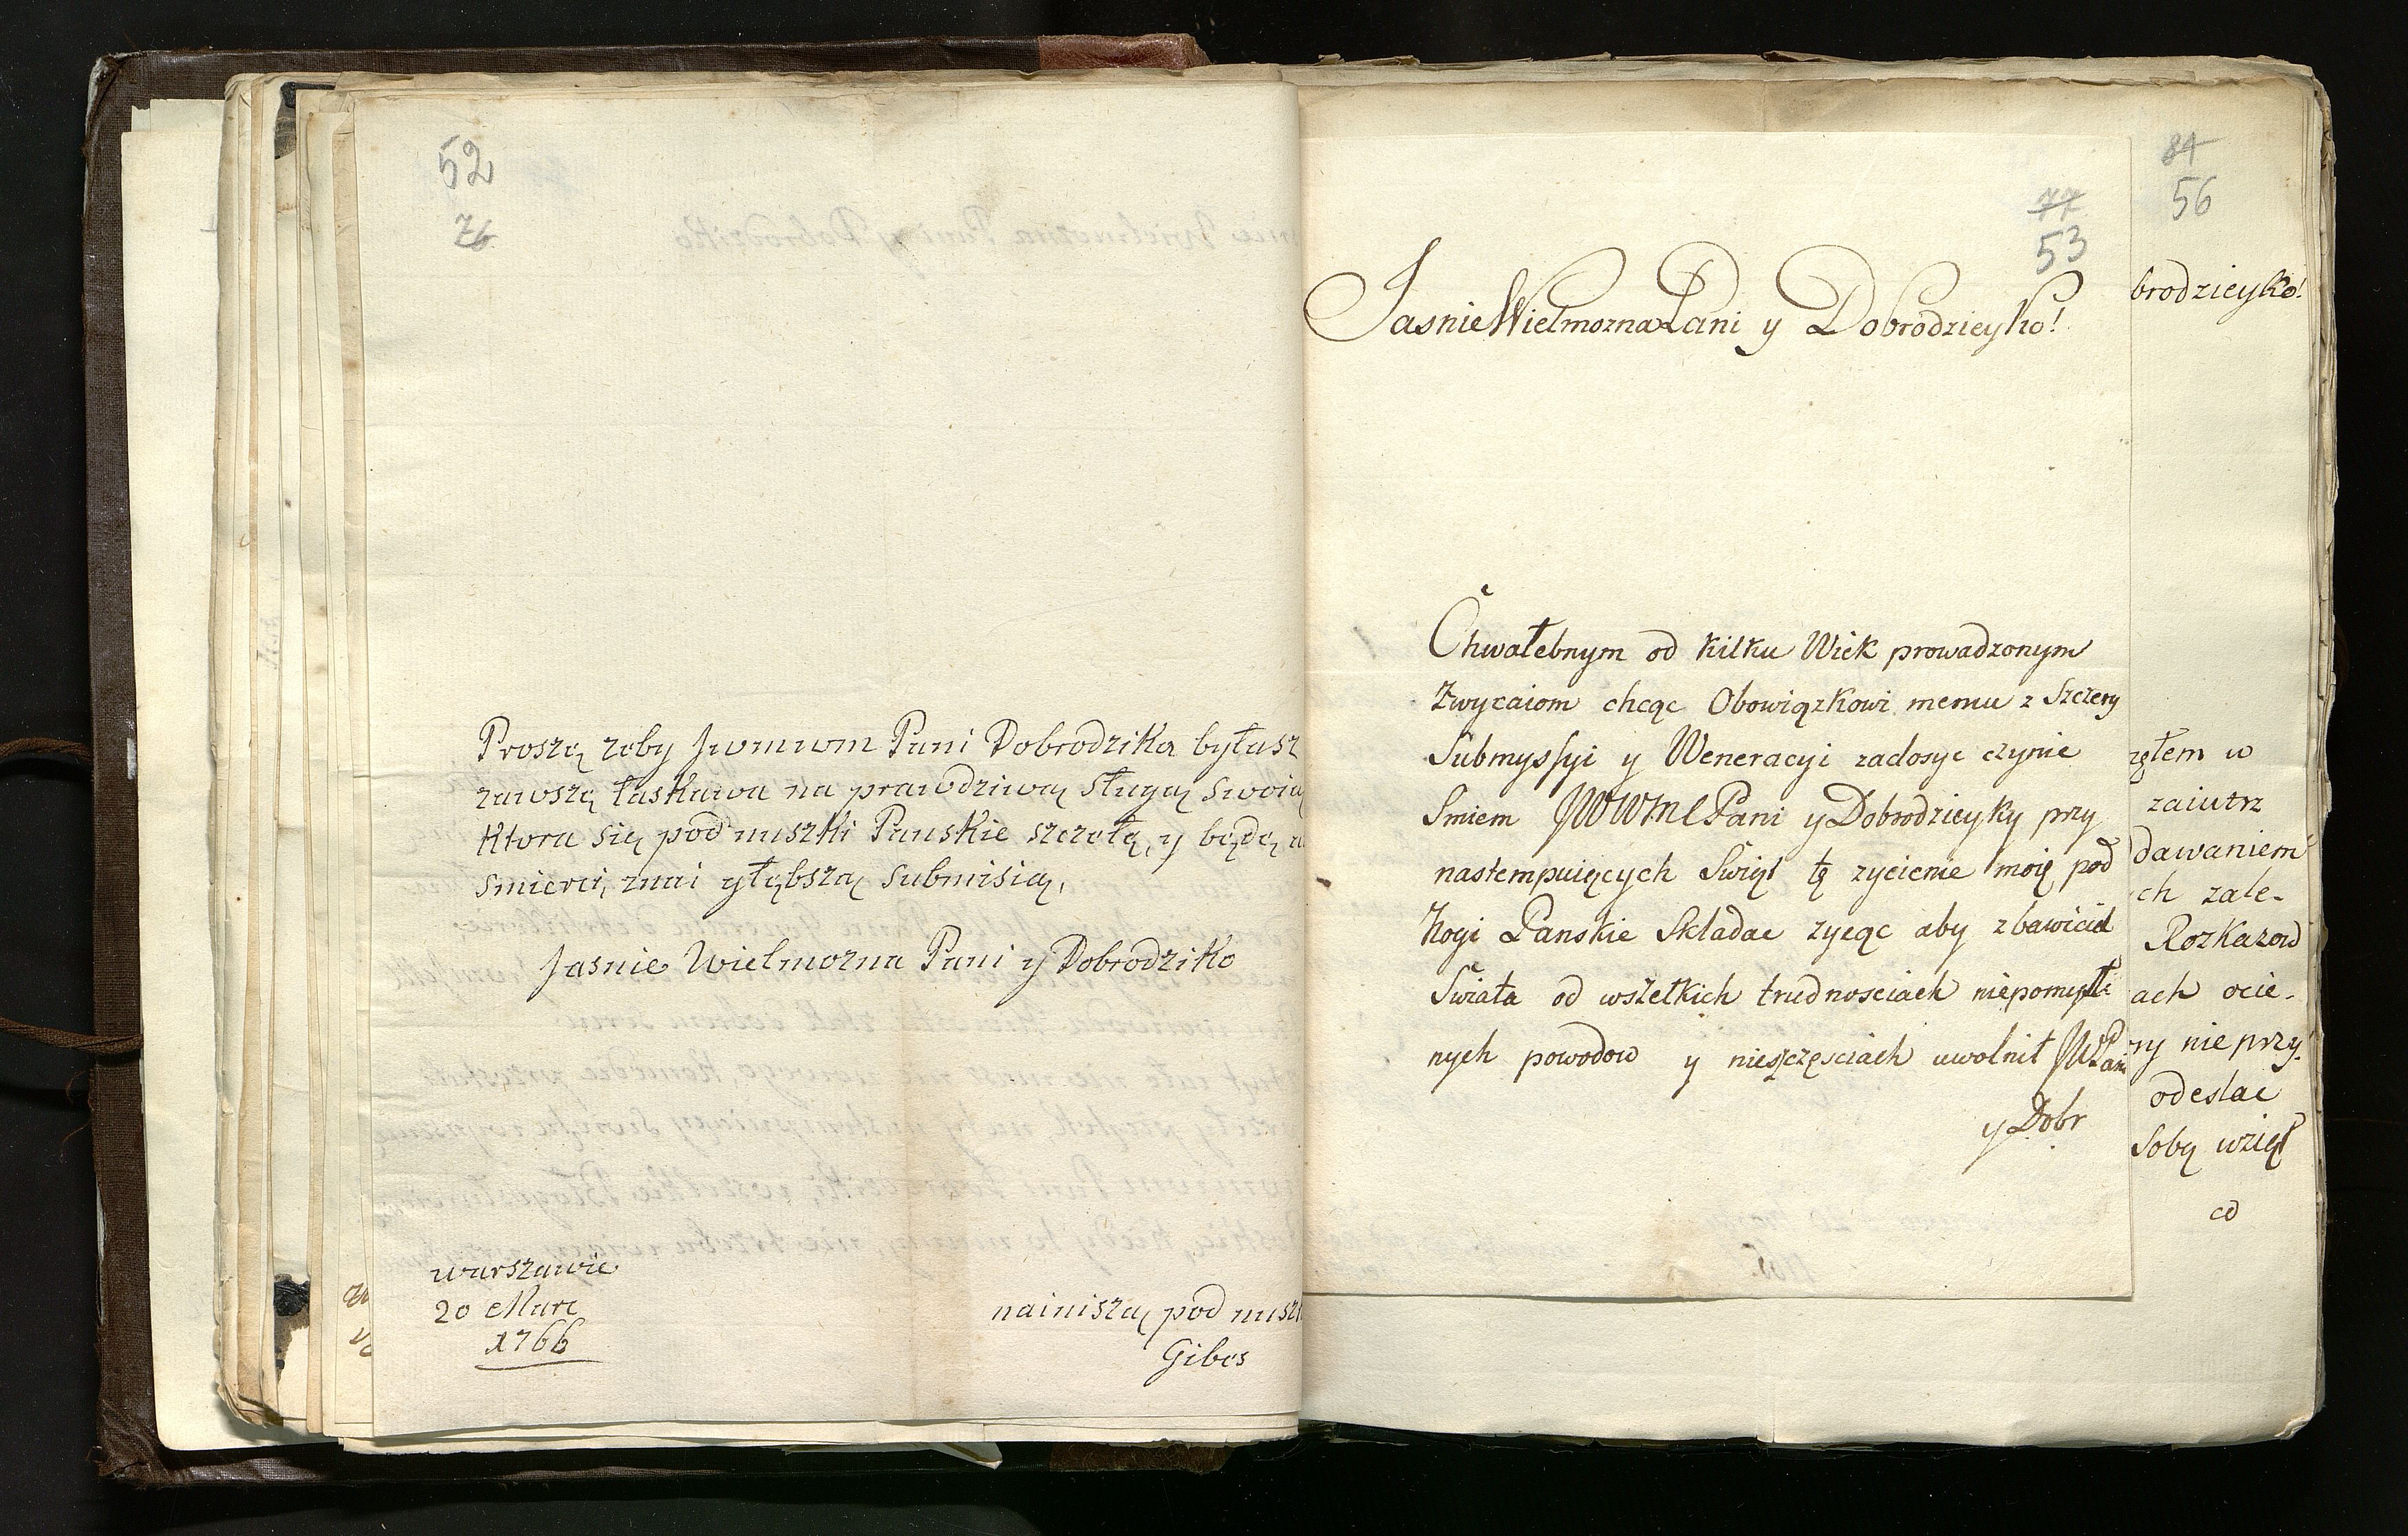 52
76
Proszę zeby Jwmwm Pani Dobrodzika byłasz
zawszę łaskawa na prawdziwą sługą swoią
ktora się pod nuszki Panskie szczełę, y będę
smierci, znai głębszą submisią,
Jasnie Wielmozna Pani y Dobrodziko
warszawie
20 Marc
1766
nainiszą pod nuszk
Gibes
77
53
Jasnie Wielmozna Pani y Dobrodzieyko!
Chwałebnym od kilku Wiek prowadzonym
Zwycaiom chcąc Obowiązkowi memu z Szczery
Submyssyi y Weneracyi zadosyc czynie
Smiem JWWMC Pani y Dobrodzieyky przy
nastempuięcych Swięt tę zycienie moię pod
Nogi Panskie Skladac zycąc aby zbawiciel
Swiata od wszelkich trudnosciach niepomysl:
nych powodow y nieszczęsciach uwolnił JWPani
y Dobr
84
56
brodzieyko!
zętem w
zaiutrz
dawaniem
ch zale-
Rozkazow
ach ocie-
ry nie przy-
odeslac
Soby wzięł
co